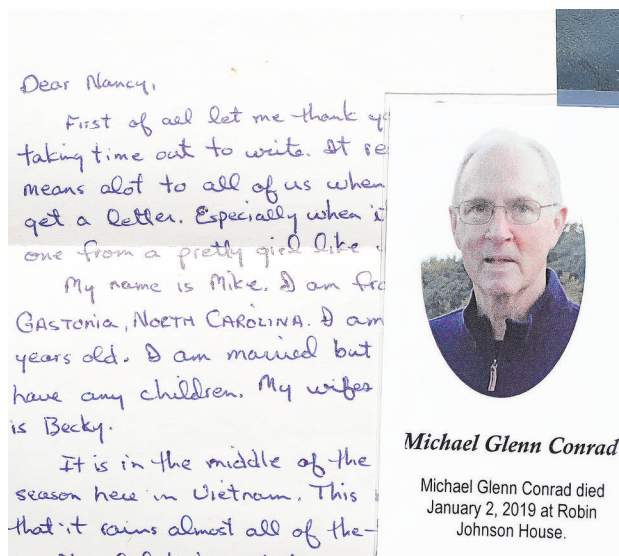 Dear Nancy,
First of all let me thank
taking time out to write. It
means alot to all of us when
get a letter. Especially when
one from a pretty girl like
My name is Mike. I am
GASTONIA, NORTH CAROLINA. I am
years old. I am married but
have any children. My wifes
is Becky.
It is in the middle of the
season here in Vietnam. This
that it rains almost all of the
Michael Glenn Conrad
Michael Glenn Conrad died
January 2, 2019 at Robin
Johnson House.